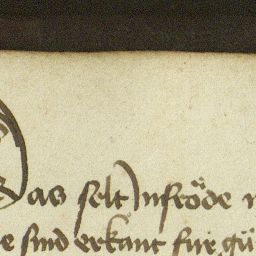 Das selt Jn fröde
e sind erkant fur gü